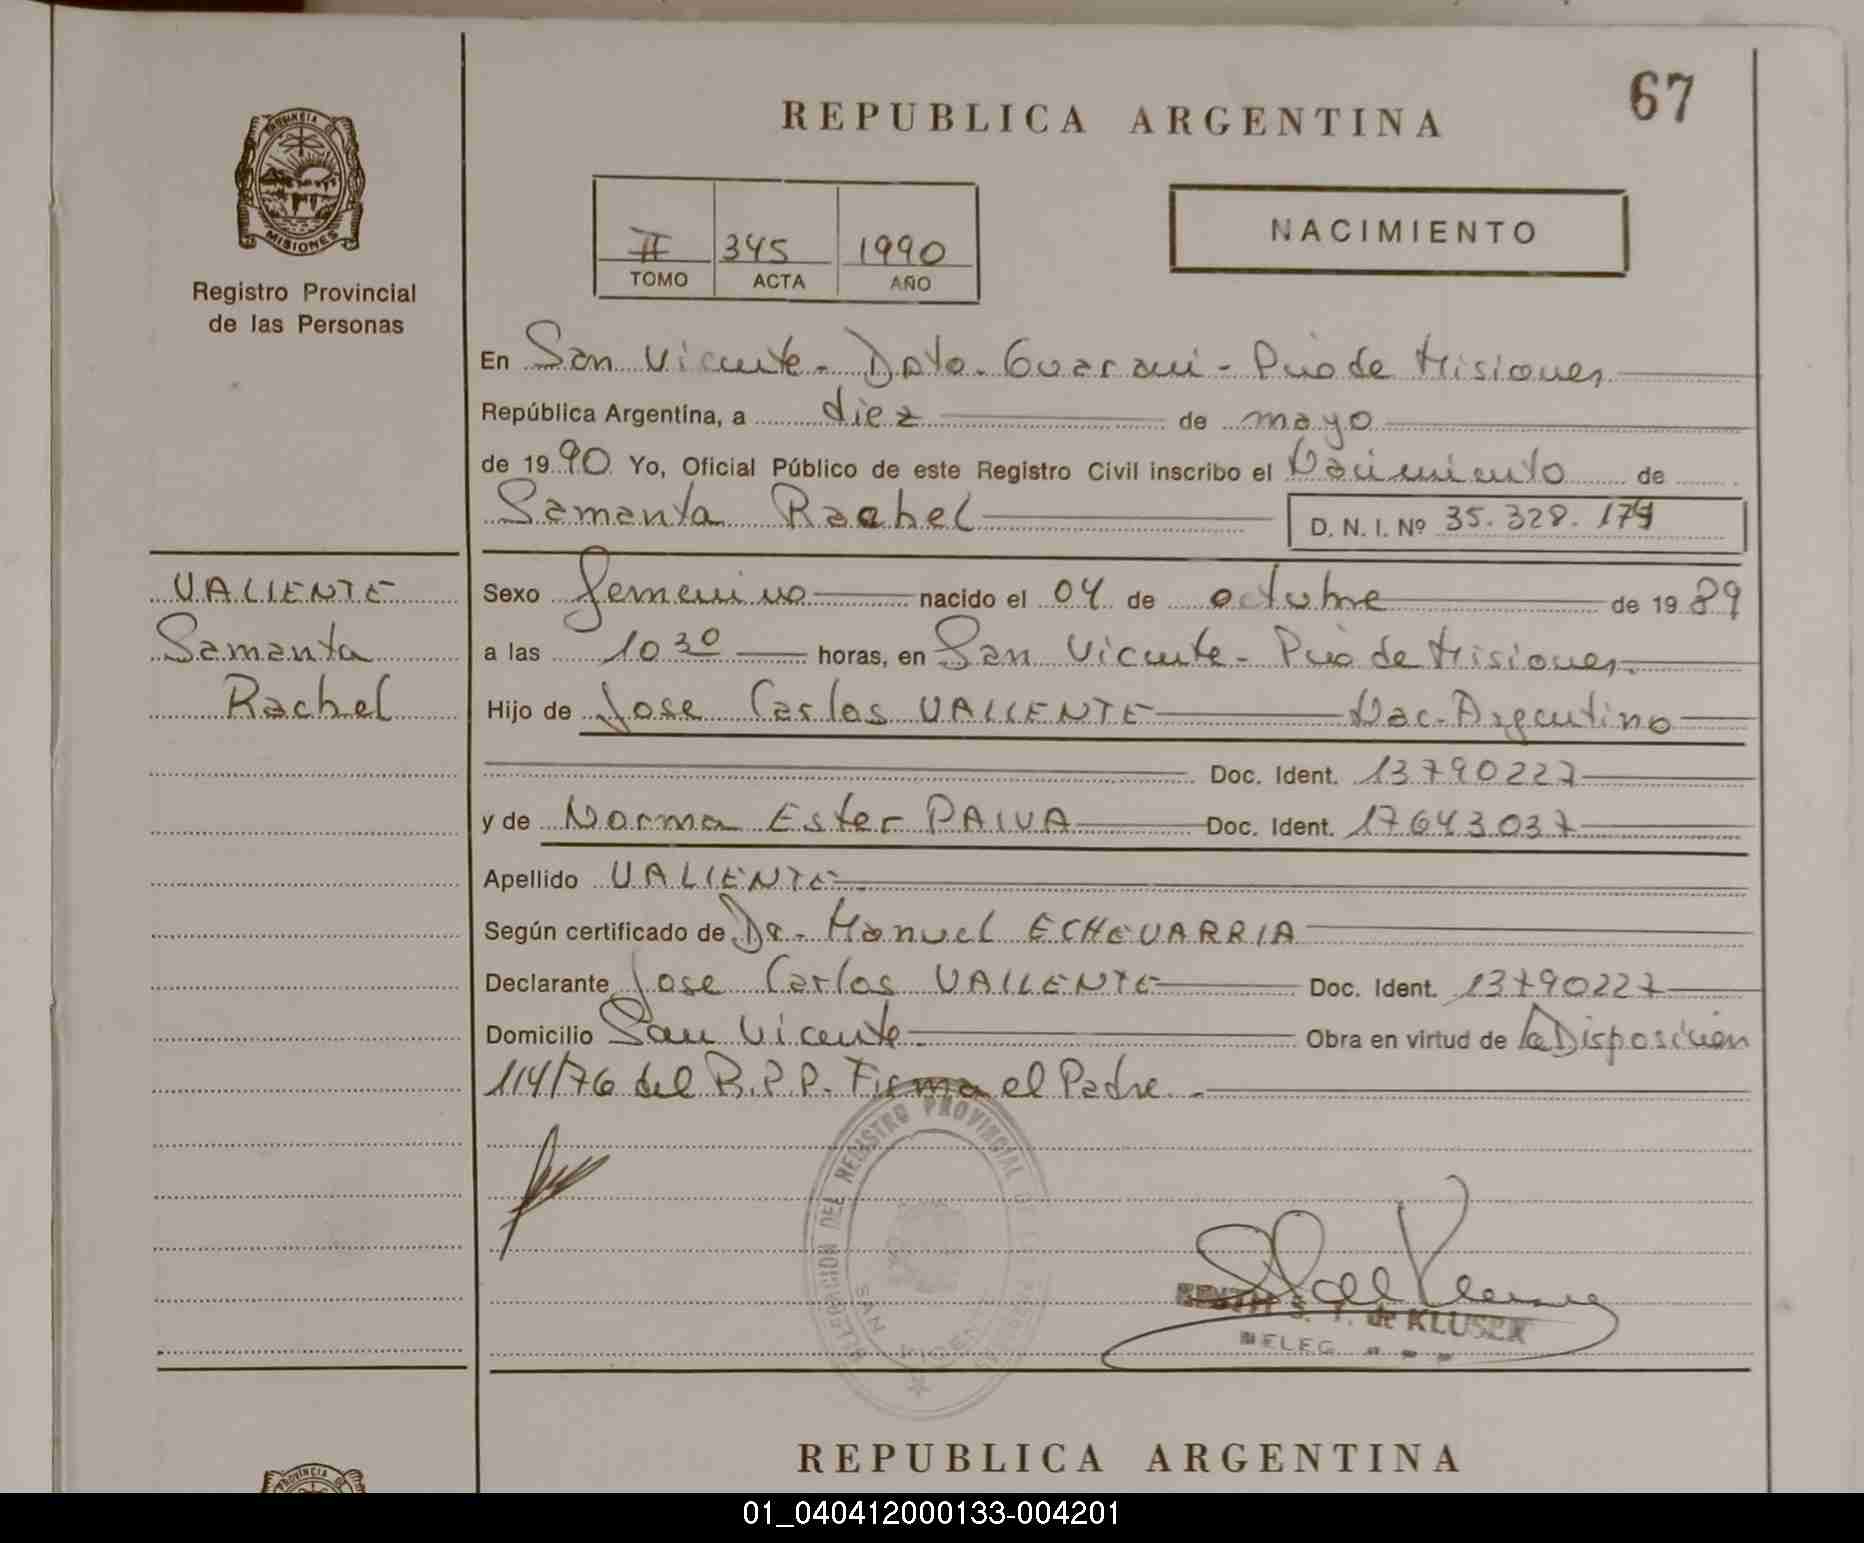 67
REPUBLICA ARGENTINA
PROVINCIA DE
MISIONES
Registro Provincial
de las Personas
II 345 1990
TOMO ACTA AÑO
NACIMIENTO
En San Vicente - Dpto. Guarani - Pcia de Misiones
República Argentina, a diez de mayo
de 1990 Yo, Oficial Público de este Registro Civil inscribo el Nacimiento de
Samanta Rachel
D. N. I. Nº 35.328.174
VALIENTE
Samanta
Rachel
Sexo femenino nacido el 04 de octubre de 1989
a las 10 30 horas, en San Vicente - Pcia de Misiones.
Hijo de Jose Carlos VALIENTE Nac. Argentino
Doc. Ident. 13790227
y de Norma Ester PAIVA Doc. Ident. 17643037
Apellido VALIENTE.
Según certificado de Dr. Manuel ECHEVARRIA
Declarante Jose Carlos VALIENTE Doc. Ident. 13790227
Domicilio San Vicente. Obra en virtud de la Disposición
114/76 del R.P.P. Firma el Padre.
DELEGACION DEL REGISTRO PROVINCIAL DE LAS
SAN VICENTE
S. T. de KLUSEK
DELEG
REPUBLICA ARGENTINA
PROVINCIA DE
01_040412000133-004201